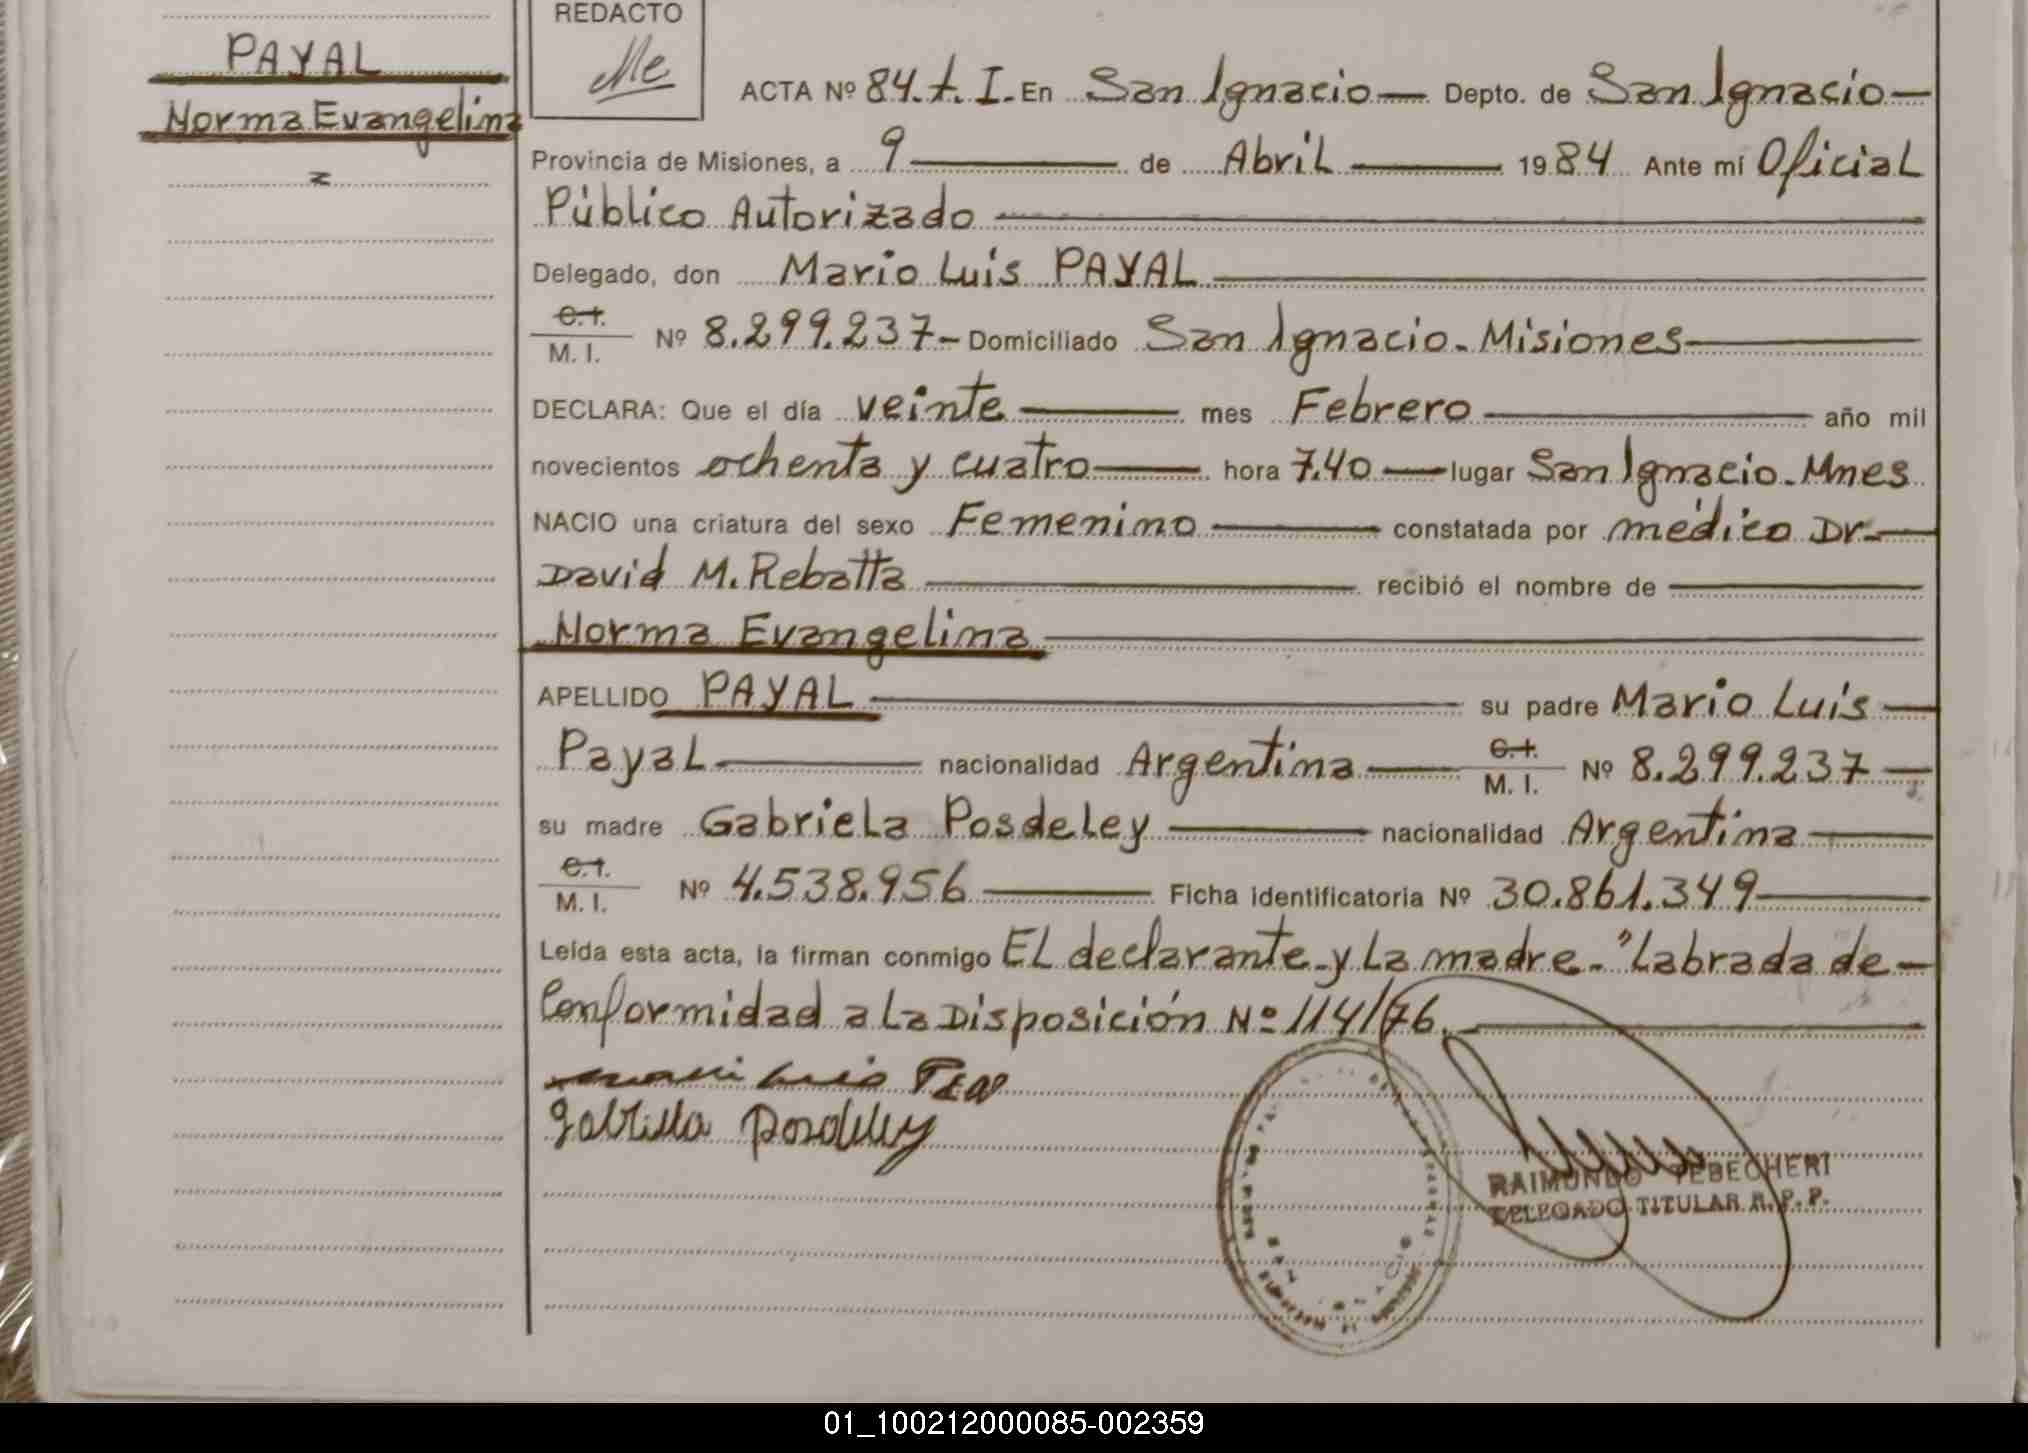 PAYAL
Norma Evangelina
REDACTO
ACTA Nº 84.t.I. En San Ignacio Depto. de San Ignacio
Provincia de Misiones, a 9 de Abril 1984 Ante mí Oficial
Público Autorizado
Delegado, don Mario Luis PAYAL
C.I.
M. I. Nº 8.299.237- Domiciliado San Ignacio - Misiones
DECLARA: Que el día veinte mes Febrero año mil
novecientos ochenta y cuatro hora 7.40 lugar San Ignacio - Mnes
NACIO una criatura del sexo Femenino constatada por médico Dr.
David M. Rebatta recibió el nombre de
Norma Evangelina
APELLIDO PAYAL su padre Mario Luis
Payal nacionalidad Argentina C.I. M. I. Nº 8.299.237
su madre Gabriela Posdeley nacionalidad Argentina
C.I.
M. I. Nº 4.538.956 Ficha identificatoria Nº 30.861.349
Leída esta acta, la firman conmigo El declarante y La madre - "Labrada de
Conformidad a La Disposición Nº 114/76.
Gabriela Posdeley
RAIMUNDO TEBECHERI
DELEGADO TITULAR R. P. P.
01_100212000085-002359